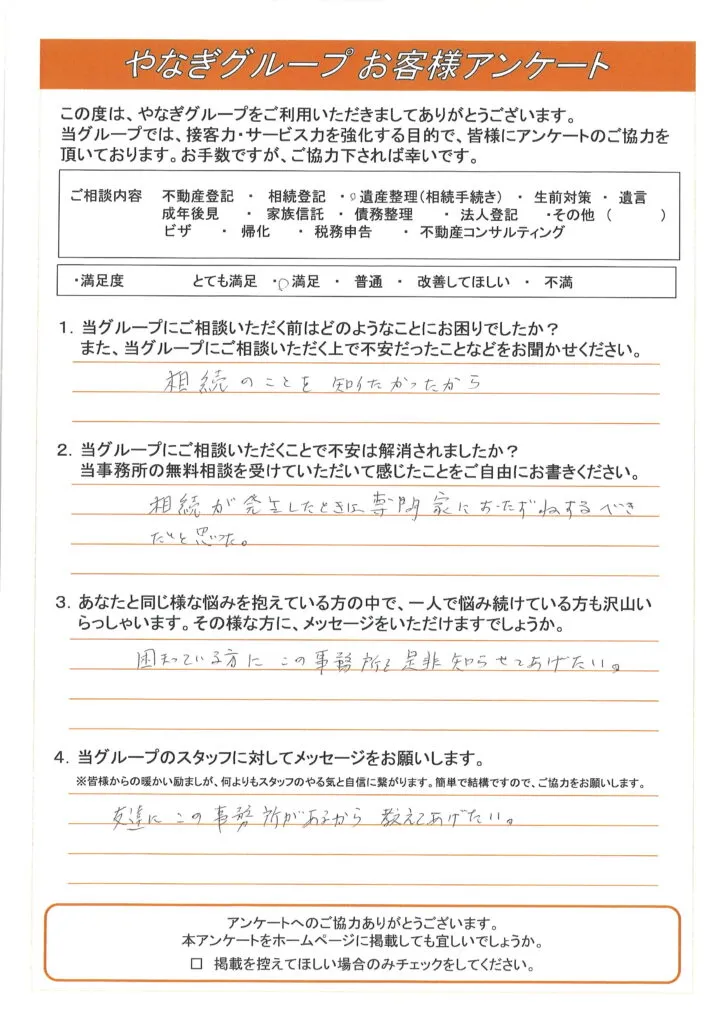 やなぎグループ お客様アンケート
この度は、やなぎグループをご利用いただきましてありがとうございます。
当グループでは、接客力・サービス力を強化する目的で、皆様にアンケートのご協力を
頂いております。お手数ですが、ご協力下されば幸いです。
ご相談内容　不動産登記 ・ 相続登記 ・ 遺産整理(相続手続き) ・ 生前対策 ・ 遺言
成年後見 ・ 家族信託 ・ 債務整理 ・ 法人登記 ・その他（　　　）
ビザ ・ 帰化 ・ 税務申告 ・ 不動産コンサルティング
・満足度　とても満足 ・ 満足 ・ 普通 ・ 改善してほしい ・ 不満
1．当グループにご相談いただく前はどのようなことにお困りでしたか？
また、当グループにご相談いただく上で不安だったことなどをお聞かせください。
相続のことを知りたかったから
2．当グループにご相談いただくことで不安は解消されましたか？
当事務所の無料相談を受けていただいて感じたことをご自由にお書きください。
相続が発生したときは専門家におたずねするべき
だと思った。
3．あなたと同じ様な悩みを抱えている方の中で、一人で悩み続けている方も沢山い
らっしゃいます。その様な方に、メッセージをいただけますでしょうか。
困っている方にこの事務所を是非知らせてあげたい。
4．当グループのスタッフに対してメッセージをお願いします。
※皆様からの暖かい励ましが、何よりもスタッフのやる気と自信に繋がります。簡単で結構ですので、ご協力をお願いします。
友達にこの事務所があるから教えてあげたい。
アンケートへのご協力ありがとうございます。
本アンケートをホームページに掲載しても宜しいでしょうか。
□ 掲載を控えてほしい場合のみチェックをしてください。